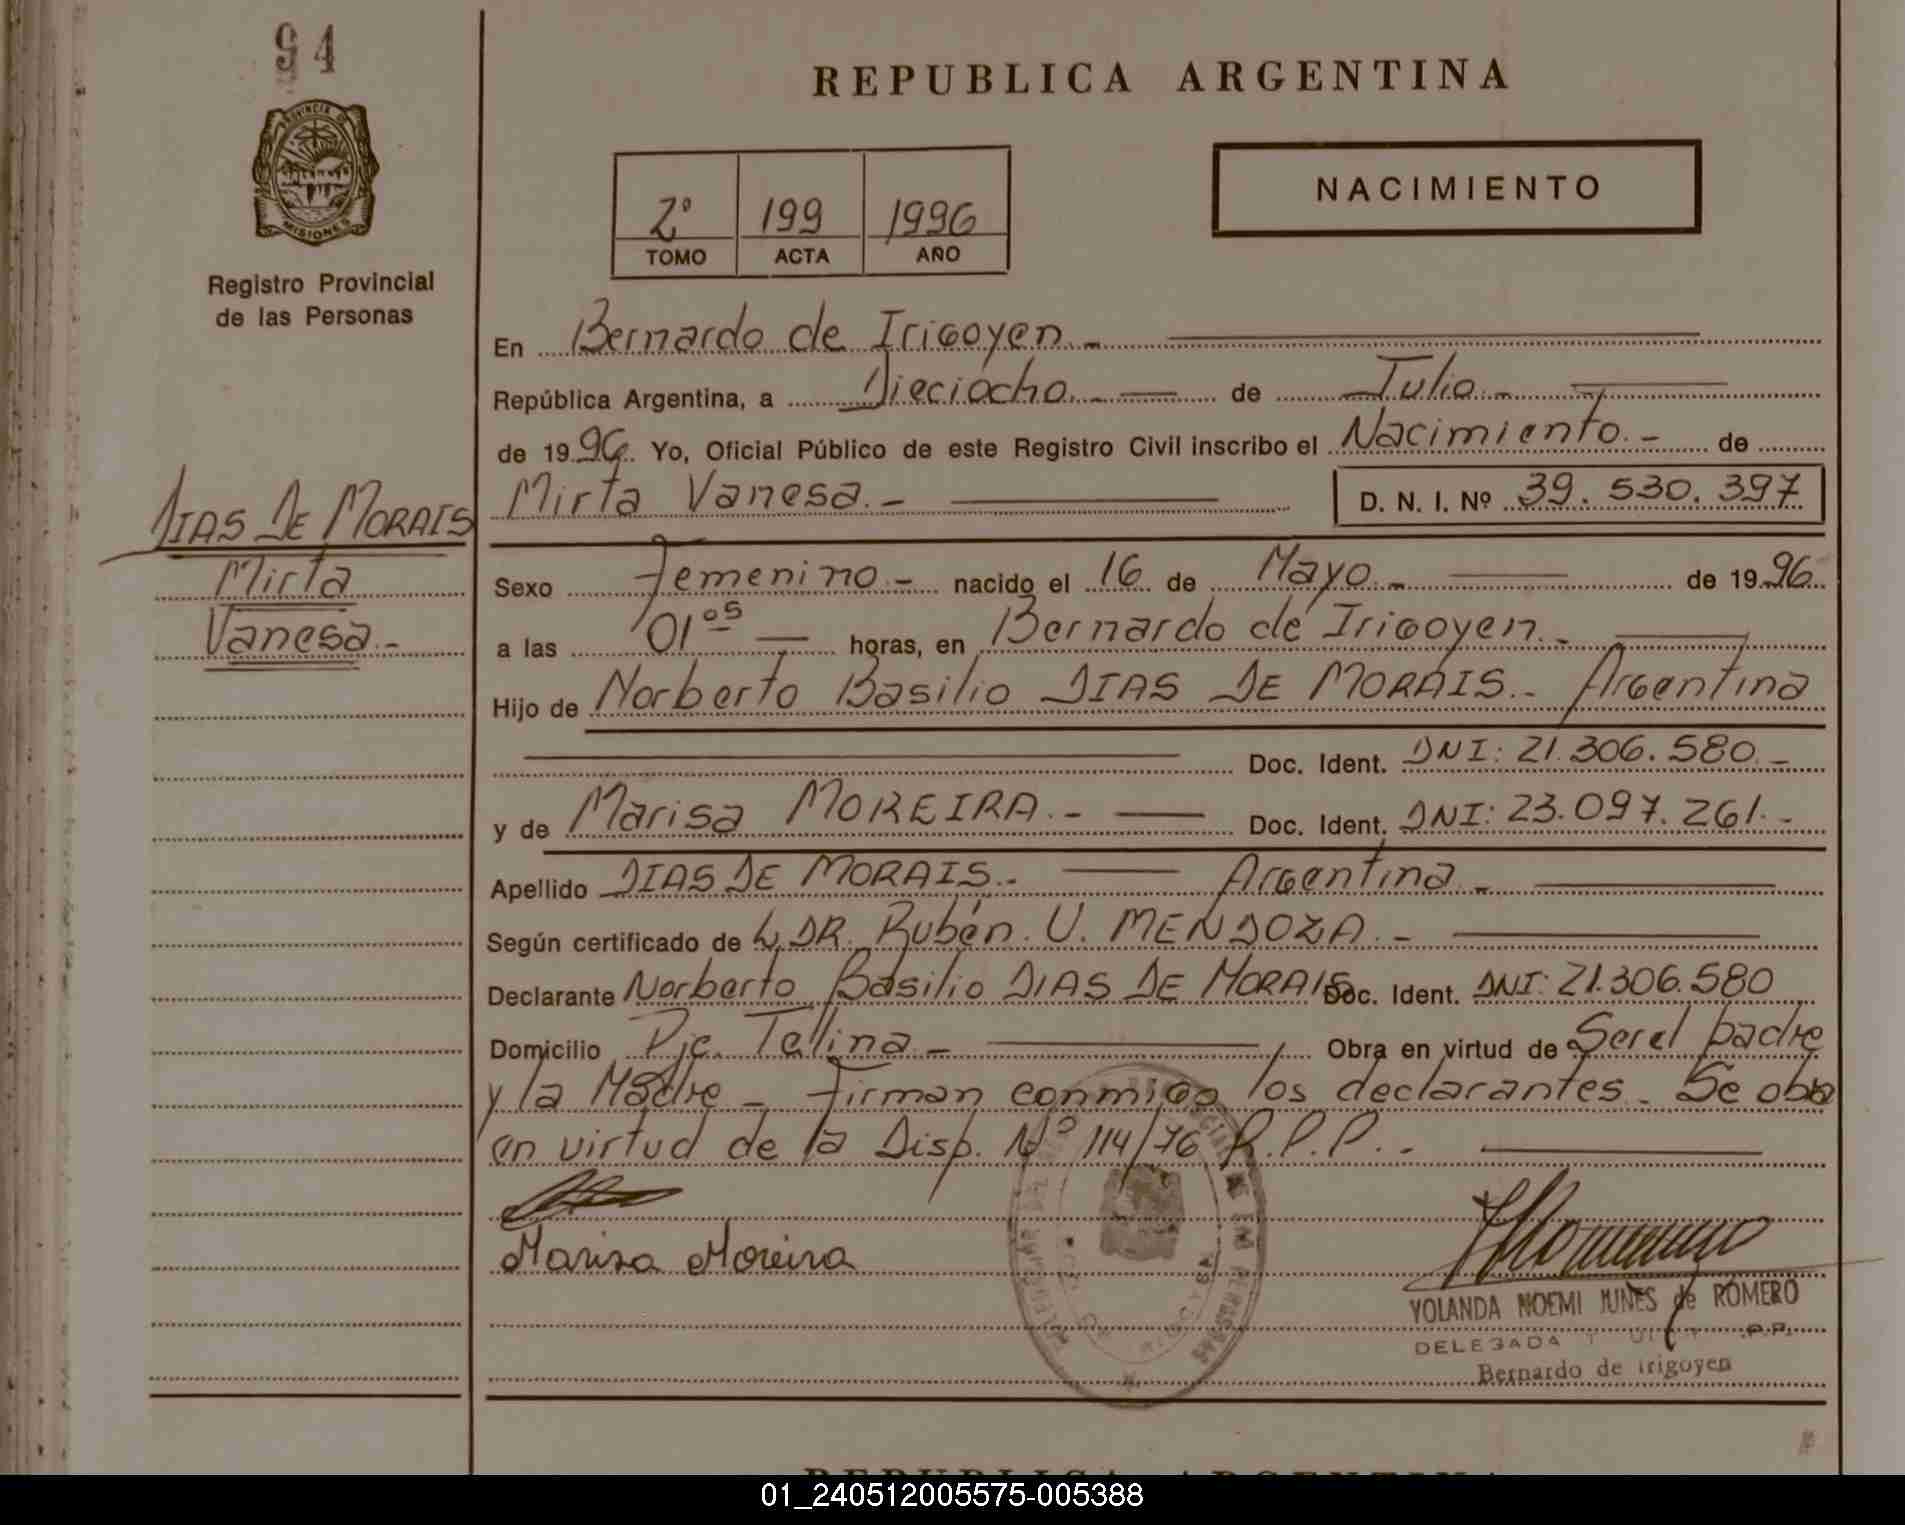 94
REPUBLICA ARGENTINA
PROVINCIA DE
MISIONES
Registro Provincial
de las Personas
2º 199 1996
TOMO ACTA AÑO
NACIMIENTO
En Bernardo de Irigoyen.-
República Argentina, a Dieciocho.- de Julio.-
de 1996. Yo, Oficial Público de este Registro Civil inscribo el Nacimiento.- de
Mirta Vanesa.- D. N. I. Nº 39.530.397
DIAS DE MORAIS
Mirta
Vanesa.-
Sexo Femenino.- nacido el 16 de Mayo.- de 1996
a las 01 05 horas, en Bernardo de Irigoyen.-
Hijo de Norberto Basilio DIAS DE MORAIS.- Argentina
Doc. Ident. DNI: 21.306.580.-
y de Marisa MOREIRA.- Doc. Ident. DNI: 23.097.261.-
Apellido DIAS DE MORAIS.- Argentina.-
Según certificado de DR. Rubén. U. MENDOZA.-
Declarante Norberto Basilio DIAS DE MORAIS Doc. Ident. DNI: 21.306.580
Domicilio Pje. Tellina.- Obra en virtud de Ser el padre
y la Madre - Firman conmigo los declarantes. Se obra
en virtud de la Disp. Nº 114/76 R.P.P..-
Marisa Moreira
YOLANDA NOEMI JUNES de ROMERO
DELEGADA
Bernardo de Irigoyen
REPUBLICA ARGENTINA
01_240512005575-005388